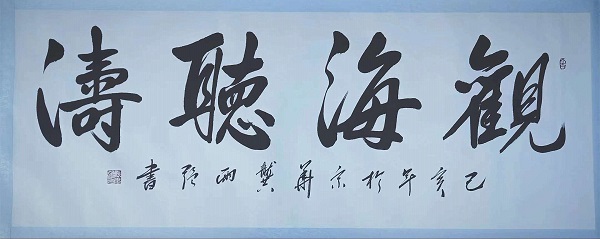 觀海聽濤
己亥年於京華龔雨書